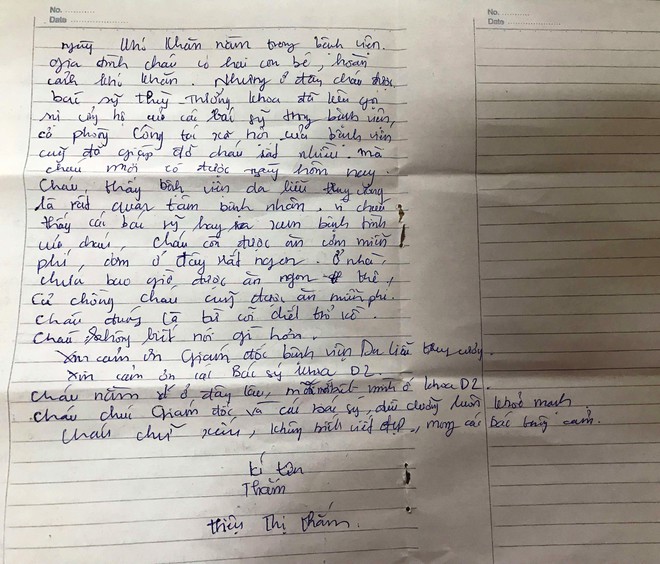 No. ............
Date .....................
No. ............
Date .....................
ngày khó khăn nằm trong bệnh viện.
gia đình cháu có hai con bé, hoàn
cảnh khó khăn. Nhưng ở đây cháu được
bác sỹ thuỳ trưởng khoa đã kêu gọi
sự ủng hộ của các bác sỹ trong bệnh viện,
cả phòng Công tác xã hội của bệnh viện
cũng đã giúp đỡ cháu rất nhiều. mà
cháu mới có được ngày hôm nay.
Cháu, thấy bệnh viện da liễu trung ương
là rất quan tâm bệnh nhân. vì cháu
thấy các bác sỹ hay ra xem bệnh tình
của cháu, cháu còn được ăn cơm miễn
phí, cơm ở đây rất ngon. ở nhà,
chưa bao giờ được ăn ngon thế,
Cả chồng cháu cũng được ăn miễn phí.
cháu đúng là từ cõi chết trở về.
cháu không biết nói gì hơn.
Xin cảm ơn Giám đốc bệnh viện Da liễu trung ương.
Xin cảm ơn các Bác sỹ khoa D2.
cháu nằm ở đây lâu, mình ở khoa D2.
cháu chúc Giám đốc và các bác sỹ, điều dưỡng luôn khoẻ mạnh
Cháu chữ xấu, không biết viết đẹp, mong các bác thông cảm.
kí tên
Thắm
thiệu Thị thắm.